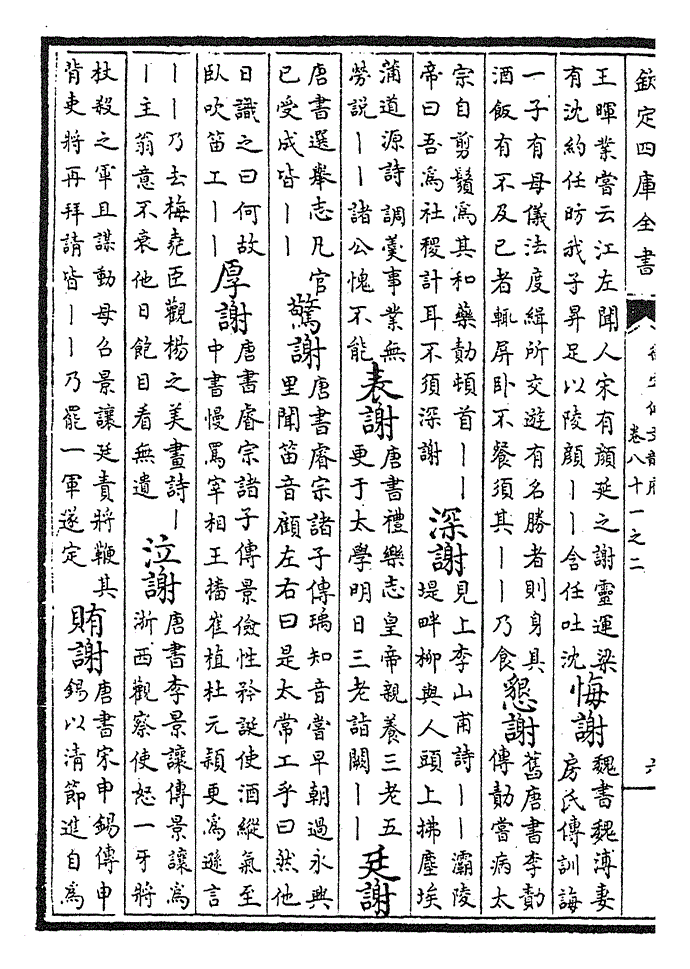 欽定四庫全書
卷八十一之二
王暉業嘗云江左聞人宋有顔延之謝靈運梁
有沈約任昉我子昇足以陵顔丨丨含任吐沈
悔謝
魏書魏溥妻
房氏傳訓誨
一子有母儀法度緝所交遊有名勝者則身具
酒飯有不及己者輒屏卧不餐須其丨丨乃食
懇謝
舊唐書李勣
傳勣嘗病太
宗自剪鬚爲其和藥勣頓首丨丨
帝曰吾爲社稷計耳不須深謝
深謝
見上李山甫詩丨丨灞陵
堤畔柳與人頭上拂塵埃
蒲道源詩調羮事業無
勞説丨丨諸公愧不能
表謝
唐書禮樂志皇帝親養三老五
更于太學明日三老詣闕丨丨
廷謝
唐書選舉志凡官
已受成皆丨丨
驚謝
唐書睿宗諸子傳瑀知音嘗早朝過永興
里聞笛音顧左右曰是太常工乎曰然他
日識之曰何故
臥吹笛工丨丨
厚謝
唐書睿宗諸子傳景儉性矜誕使酒縱氣至
中書慢罵宰相王播崔植杜元穎更爲遜言
丨丨乃去梅堯臣觀楊之美畫詩丨
丨主翁意不衰他日飽目看無遺
泣謝
唐書李景讓傳景讓爲
浙西觀察使怒一牙將
杖殺之軍且謀動母召景讓廷責將鞭其
背吏將再拜請皆丨丨乃罷一軍遂定
賄謝
唐書宋申錫傳申
錫以清節進自爲